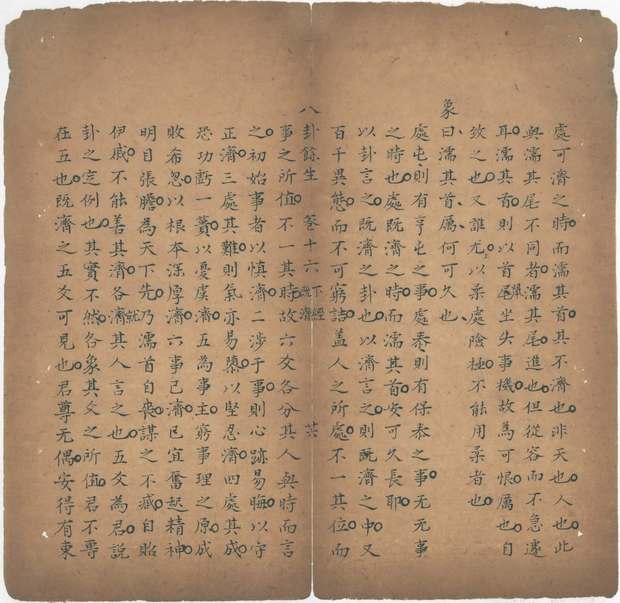 處可濟之時而濡其首其不濟也非天也人也此
與濡其尾不同者濡其尾進也但從容而不急遽
耳濡其首則以首尾巢坐失事機故為可恨厲也自
致之也又誰尤以柔處陰極不能用柔者也
象曰濡其首厲何可久也
處屯則有亨屯之事處泰則有保泰之事无无事
之時也處既濟之時而濡其首安可久長耶
以卦言之既濟之卦也以濟言之則既濟之中又
百千異態而不可窮詰蓋人之所處不一其位而
八卦餘生 卷十六 下經 既濟 共
事之所值不一其時故六爻各分其人與時而言
之初始事者以慎濟二涉于事則心跡易晦以守
正濟三處其難則氣亦易隳以堅忍濟四處其成
恐功虧一簣以憂虞濟五為事主窮事理之原成
敗希忽以根本深厚濟六事已濟已宜奮起精神
明目張膽為天下先乃濡首自喪謀之不臧自貽
伊慼不能善其濟各就濟其人言之也五爻為君說
卦之定例也其實不然各象其爻之所值君不專
在五也既濟之五爻可見也君尊无偶安得有東